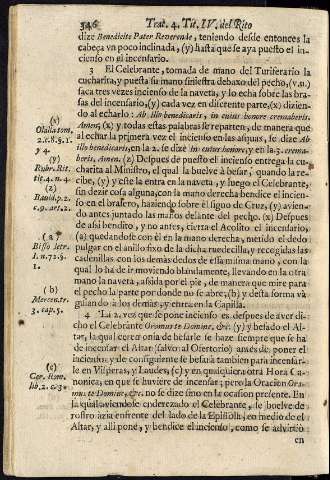 346 Trat. 4. Tit. IV. del Rito
dize Benedicite Pater Reverende, teniendo desde entonces la
cabeça vn poco inclinada, (y) hasta que se aya puesto el in-
cienso en el incensario.
3 El Celebrante, tomada de mano del Turiferario la
cucharita, y puesta su mano siniestra debaxo del pecho, (v.u.)
saca tres vezes incienso de la naveta, y lo echa sobre las bra-
sas del incensario, (y) cada vez en diferente parte, (x) dizien-
do al echarlo: Ab illo benedicaris, in cuius honore cremaberis.
Amen, (x) y todas estas palabras se reparten, de manera que
al echar la primera vez el incienso en las asquas, se dize Ab
illo benedicaris, en la 2. se dize In cuius honore, y en la 3. crema-
beris, Amen. (z) Despues de puesto el incienso entrega la cu-
charita al Ministro, el qual la buelve à besar, quando la re-
cibe, (y) y este la entra en la naveta, y luego el Celebrante,
sin dezir cosa alguna, con la mano derecha bendice el incien-
so en el brasero, haziendo sobre èl el signo de Cruz, (y) avien-
do antes juntado las manos delante del pecho. (z) Despues
de assi bendito, y no antes, cierra el Acolito el incensario,
(a) quedandose con èl en la mano derecha, metido el dedo
pulgar en el anillo fixo de la dicha ruedecilla, y recogidas las
cadenillas con los demàs dedos de essa misma mano, con la
qual lo hà de ir moviendo blandamente, llevando en la otra
mano la naveta, assida por el pie, de manera que mire para
el pecho la parte por donde no se abre, (b) y desta forma và
guiando à los demàs, y entra en la Capilla.
4 La 2. vez que se pone incienso es despues de aver di-
cho el Celebrante Oramus te Domine, &c. (y) y besado el Al-
tar, la qual ceremonia de besarle se haze siempre que se hà
de incensar el Altar (salvo al Ofertorio) antes de poner el
incienso; y de consiguiente se besarà tambien para incensar-
le en Visperas, y Laudes, (c) y en qualquier otra Hora Ca-
nonica, en que se huviere de incensar; pero la Oracion Ora-
mus te Domine, &c. no se dize sino en la ocasion presente. En
la qual aviendose enderezado el Celebrante, se buelve de
rostro àzia enfrente del lado de la Epistola, en medio de el
Altar, y alli pone, y bendice el incienso, como se advirtiò
en
(x)
Olalla tom.
2. c. 8. §. 1.
4.
(y)
Rubr. Rit.
tit. 4. n. 4.
(z)
Bauld. p. 2.
c. 9. art. 2.
(a)
Bisso letr.
I. n. 72. §.
1.
(b)
Mercen. tr.
3. cap. 5.
(c)
Cer. Rom.
lib. 2. c. 3.